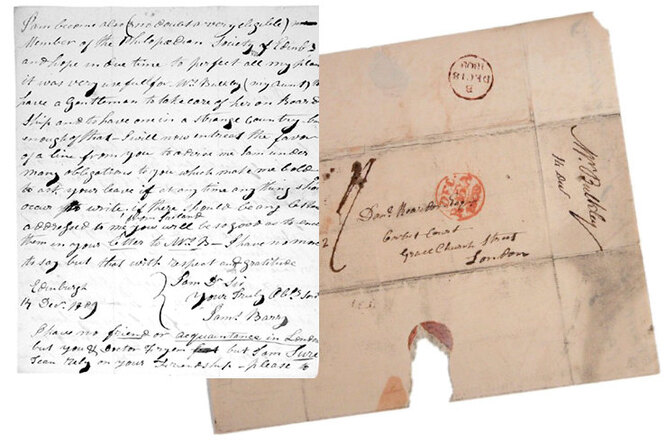 I am become also (no doubt a very eligible)
Member of the Philopædian Society of Edinb
and hope in due time to perfect all my plan
it was very useful for Mrs Bulkley (my Aunt) to
have a Gentleman to take care of her on Board
Ship and to have one in a strange Country - but
enough of that - I will now entreat the favor
of a line from you to advise me I am under
many obligations to you which make me bold
to ask your leave if at any time any thing shou
occur to write, if there should be any letters
from Ireland
addressed to me you will be so good as to
them in your letter to Mrs B- I have no more
to say but that with respect and gratitude
Edinburgh
14 Decr. 1809
I am Dr Sir
Your Truly Obt Sert
Jams. Barry
I have no friend or acquaintance in London
but you & Doctor Fryer but I am Sure
I can rely on your Friendship - please to
B
DEC 18
1809
Danl Reardon Esqr
Corbet Court
Grace Church Street
London
Mrs Bulkley
14 Decr